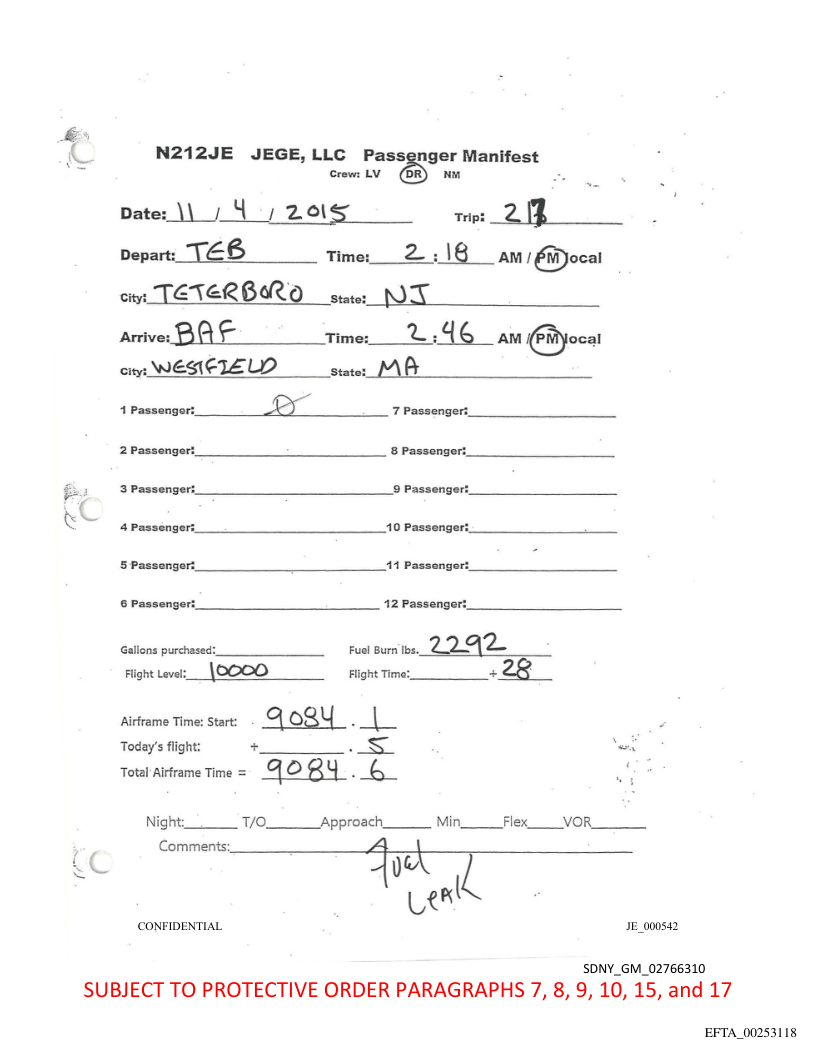 N212JE JEGE, LLC Passenger Manifest
Crew: LV DR NM
Date: 11 / 4 / 2015 Trip:
Depart: TEB Time: 2 : 18 AM / PM local
City: TETERBORO State: NJ
Arrive: BAF Time: 2 : 46 AM / PM local
City: WESTFIELD State: MA
1 Passenger: 0 7 Passenger:
2 Passenger: 8 Passenger:
3 Passenger: 9 Passenger:
4 Passenger: 10 Passenger:
5 Passenger: 11 Passenger:
6 Passenger: 12 Passenger:
Gallons purchased: Fuel Burn lbs. 2292
Flight Level: 10000 Flight Time: + 28
Airframe Time: Start: 9084 . 1
Today's flight: + . 5
Total Airframe Time = 9084 . 6
Night: T/O Approach Min Flex VOR
Comments:
Fuel
Leak
CONFIDENTIAL JE_000542
SDNY_GM_02766310
SUBJECT TO PROTECTIVE ORDER PARAGRAPHS 7, 8, 9, 10, 15, and 17
EFTA_00253118